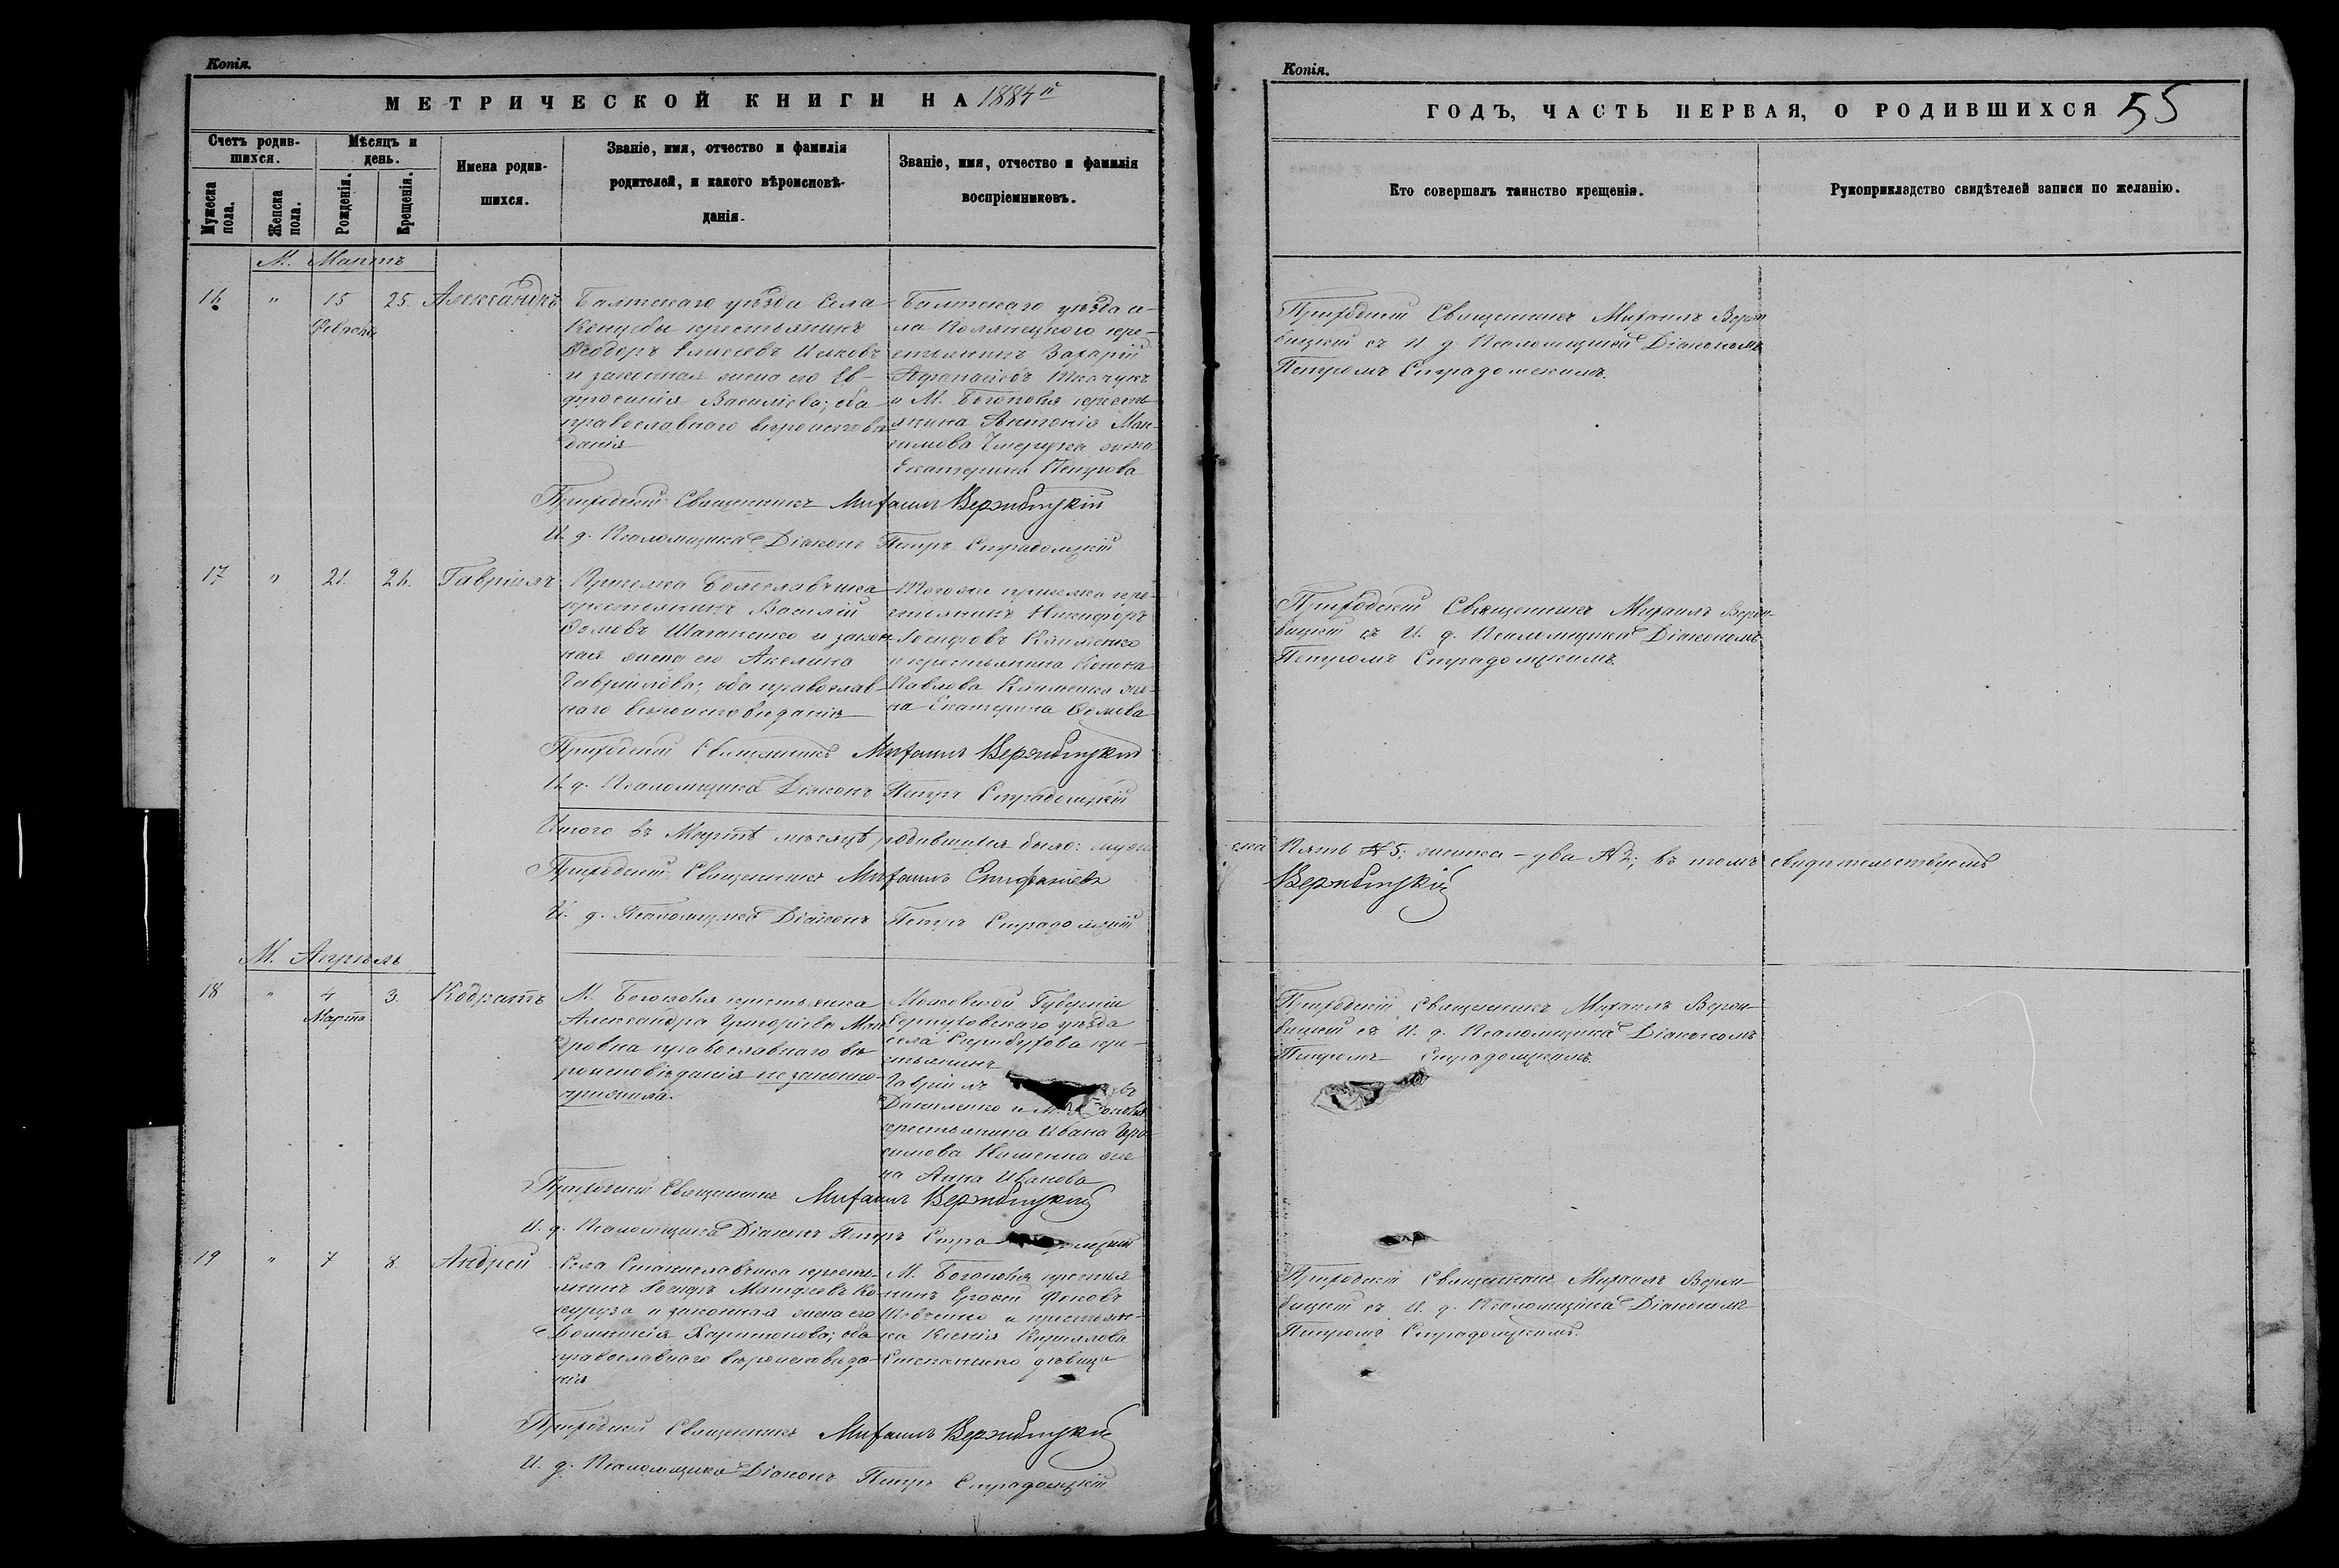 Копія.
МЕТРИЧЕСКОЙ КНИГИ НА 1884й
Счетъ родив-
шихся.
Мѣсяцъ и
день.
Мужеска
пола.
Женска
пола.
Рожденія.
Крещенія.
Имена родив-
шихся.
Званіе, имя, отчество и фамилія
родителей, и какого вѣроисповѣ-
данія.
Званіе, имя, отчество и фамилія
воспріемниковъ.
М. Мартъ
16 " 15 25. Александръ
Февраля
Балтскаго уѣзда Села
крестьянинъ
Ѳеодоръ Елисеевъ
и законная жена его Ев-
фросинія Василіева; оба
православнаго вѣроисповѣ-
данія
Балтскаго уѣзда се-
ла кре-
стьянинъ Захарій
Афанасіевъ Ткачукъ
и М. Богополя кресть-
янина Антонія Мак-
симова жена
Екатерина Петрова
Приходскій Священникъ Михаилъ Вержбицкій
И. д. Псаломщика Діаконъ Петръ Страдомскій
17 " 21. 26. Гавріилъ
Приселка Болеславчика
крестьянинъ Василій
Ѳомовъ и закон-
ная жена его Акелина
Гавриилова; оба православ-
наго вѣроисповѣданія
Того же приселка кре-
стьянинъ Никифоръ
Іосифовъ Клименко
и крестьянина Конона
Павлова Клименка же-
на Екатерина Ѳомова
Приходскій Священникъ Михаилъ Вержбицкій
И. д. Псаломщика Діаконъ Петръ Страдомскій
Итого въ Мартѣ мѣсяцѣ родившихся было: муже-
Приходскій Священникъ Михаилъ Епифаніевъ
И. д. Псаломщика Діаконъ Петръ Страдомскій
М. Апрѣль
18 " 4 3. Кодратъ
Марта
М. Богополя крестьянка
Александра Григоріева
православнаго вѣ-
роисповѣданія незаконно-
прижила.
Московской Губерніи
Серпуховскаго уѣзда
села кре-
стьянинъ
Гавріилъ
Даниленко и М. Богополя
крестьянина Ивана Гера-
симова же-
на Анна Иванова
Приходскій Священникъ Михаилъ Вержбицкій
И. д. Псаломщика Діаконъ Петръ
19 " 7 8. Андрей
Села Станиславчика кресть-
янинъ Іосифъ Матфеевъ
и законная жена его
Домникія Харитонова; оба
православнаго вѣроисповѣда-
нія
М. Богополя крестья-
нинъ
Шевченко и крестьян-
ка Ксенія Кириллова
Степаненко дѣвица
Приходскій Священникъ Михаилъ Вержбицкій
И. д. Псаломщика Діаконъ Петръ Страдомскій
Копія.
ГОДЪ, ЧАСТЬ ПЕРВАЯ, О РОДИВШИХСЯ 55
Кто совершалъ таинство крещенія.
Рукоприкладство свидѣтелей записи по желанію.
Приходскій Священникъ Михаилъ Верж-
бицкій съ И. д. Псаломщика Діакономъ
Петромъ Страдомскимъ.
Приходскій Священникъ Михаилъ Верж-
бицкій съ И. д. Псаломщика Діакономъ
Петромъ Страдомскимъ.
ска Пять № 5; женска - два № 2; въ томъ свидѣтельствуемъ
Вержбицкій
Приходскій Священникъ Михаилъ Верж-
бицкій съ И. д. Псаломщика Діакономъ
Петромъ Страдомскимъ.
Приходскій Священникъ Михаилъ Верж-
бицкій съ И. д. Псаломщика Діакономъ
Петромъ Страдомскимъ.